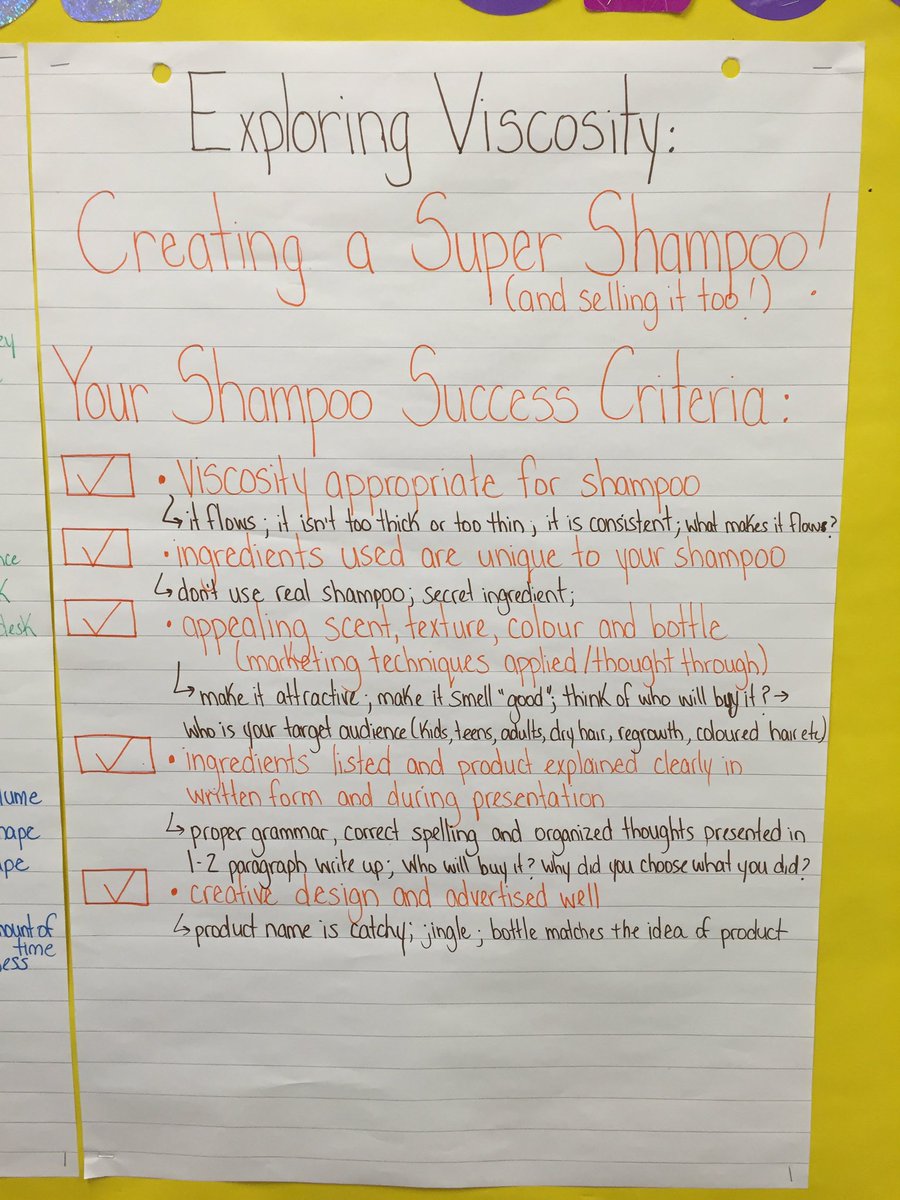 Exploring Viscosity:
Creating a Super Shampoo!
(and selling it too!)
Your Shampoo Success Criteria:
• Viscosity appropriate for shampoo
↳ it flows; it isn't too thick or too thin, it is consistent; what makes it flows?
• ingredients used are unique to your shampoo
↳ don't use real shampoo; secret ingredient;
• appealing scent, texture, colour and bottle
(marketing techniques applied/thought through)
↳ make it attractive; make it smell "good"; think of who will buy it? →
who is your target audience (kids, teens, adults, dry hair, regrowth, coloured hair etc)
• ingredients listed and product explained clearly in
written form and during presentation
↳ proper grammar, correct spelling and organized thoughts presented in
1-2 paragraph write up; who will buy it? why did you choose what you did?
• creative design and advertised well
↳ product name is catchy; jingle; bottle matches the idea of product
desk
time